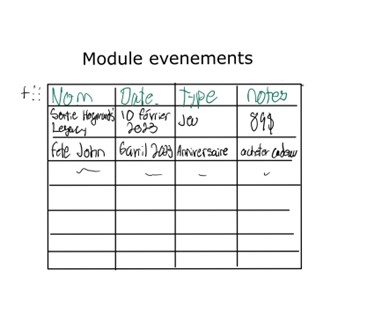 Module evenements
Nom Date type notes
Sortie Hogwarts 10 février Jeu 89$
Legacy 2023
Fete John 6 avril 2023 Anniversaire acheter cadeau